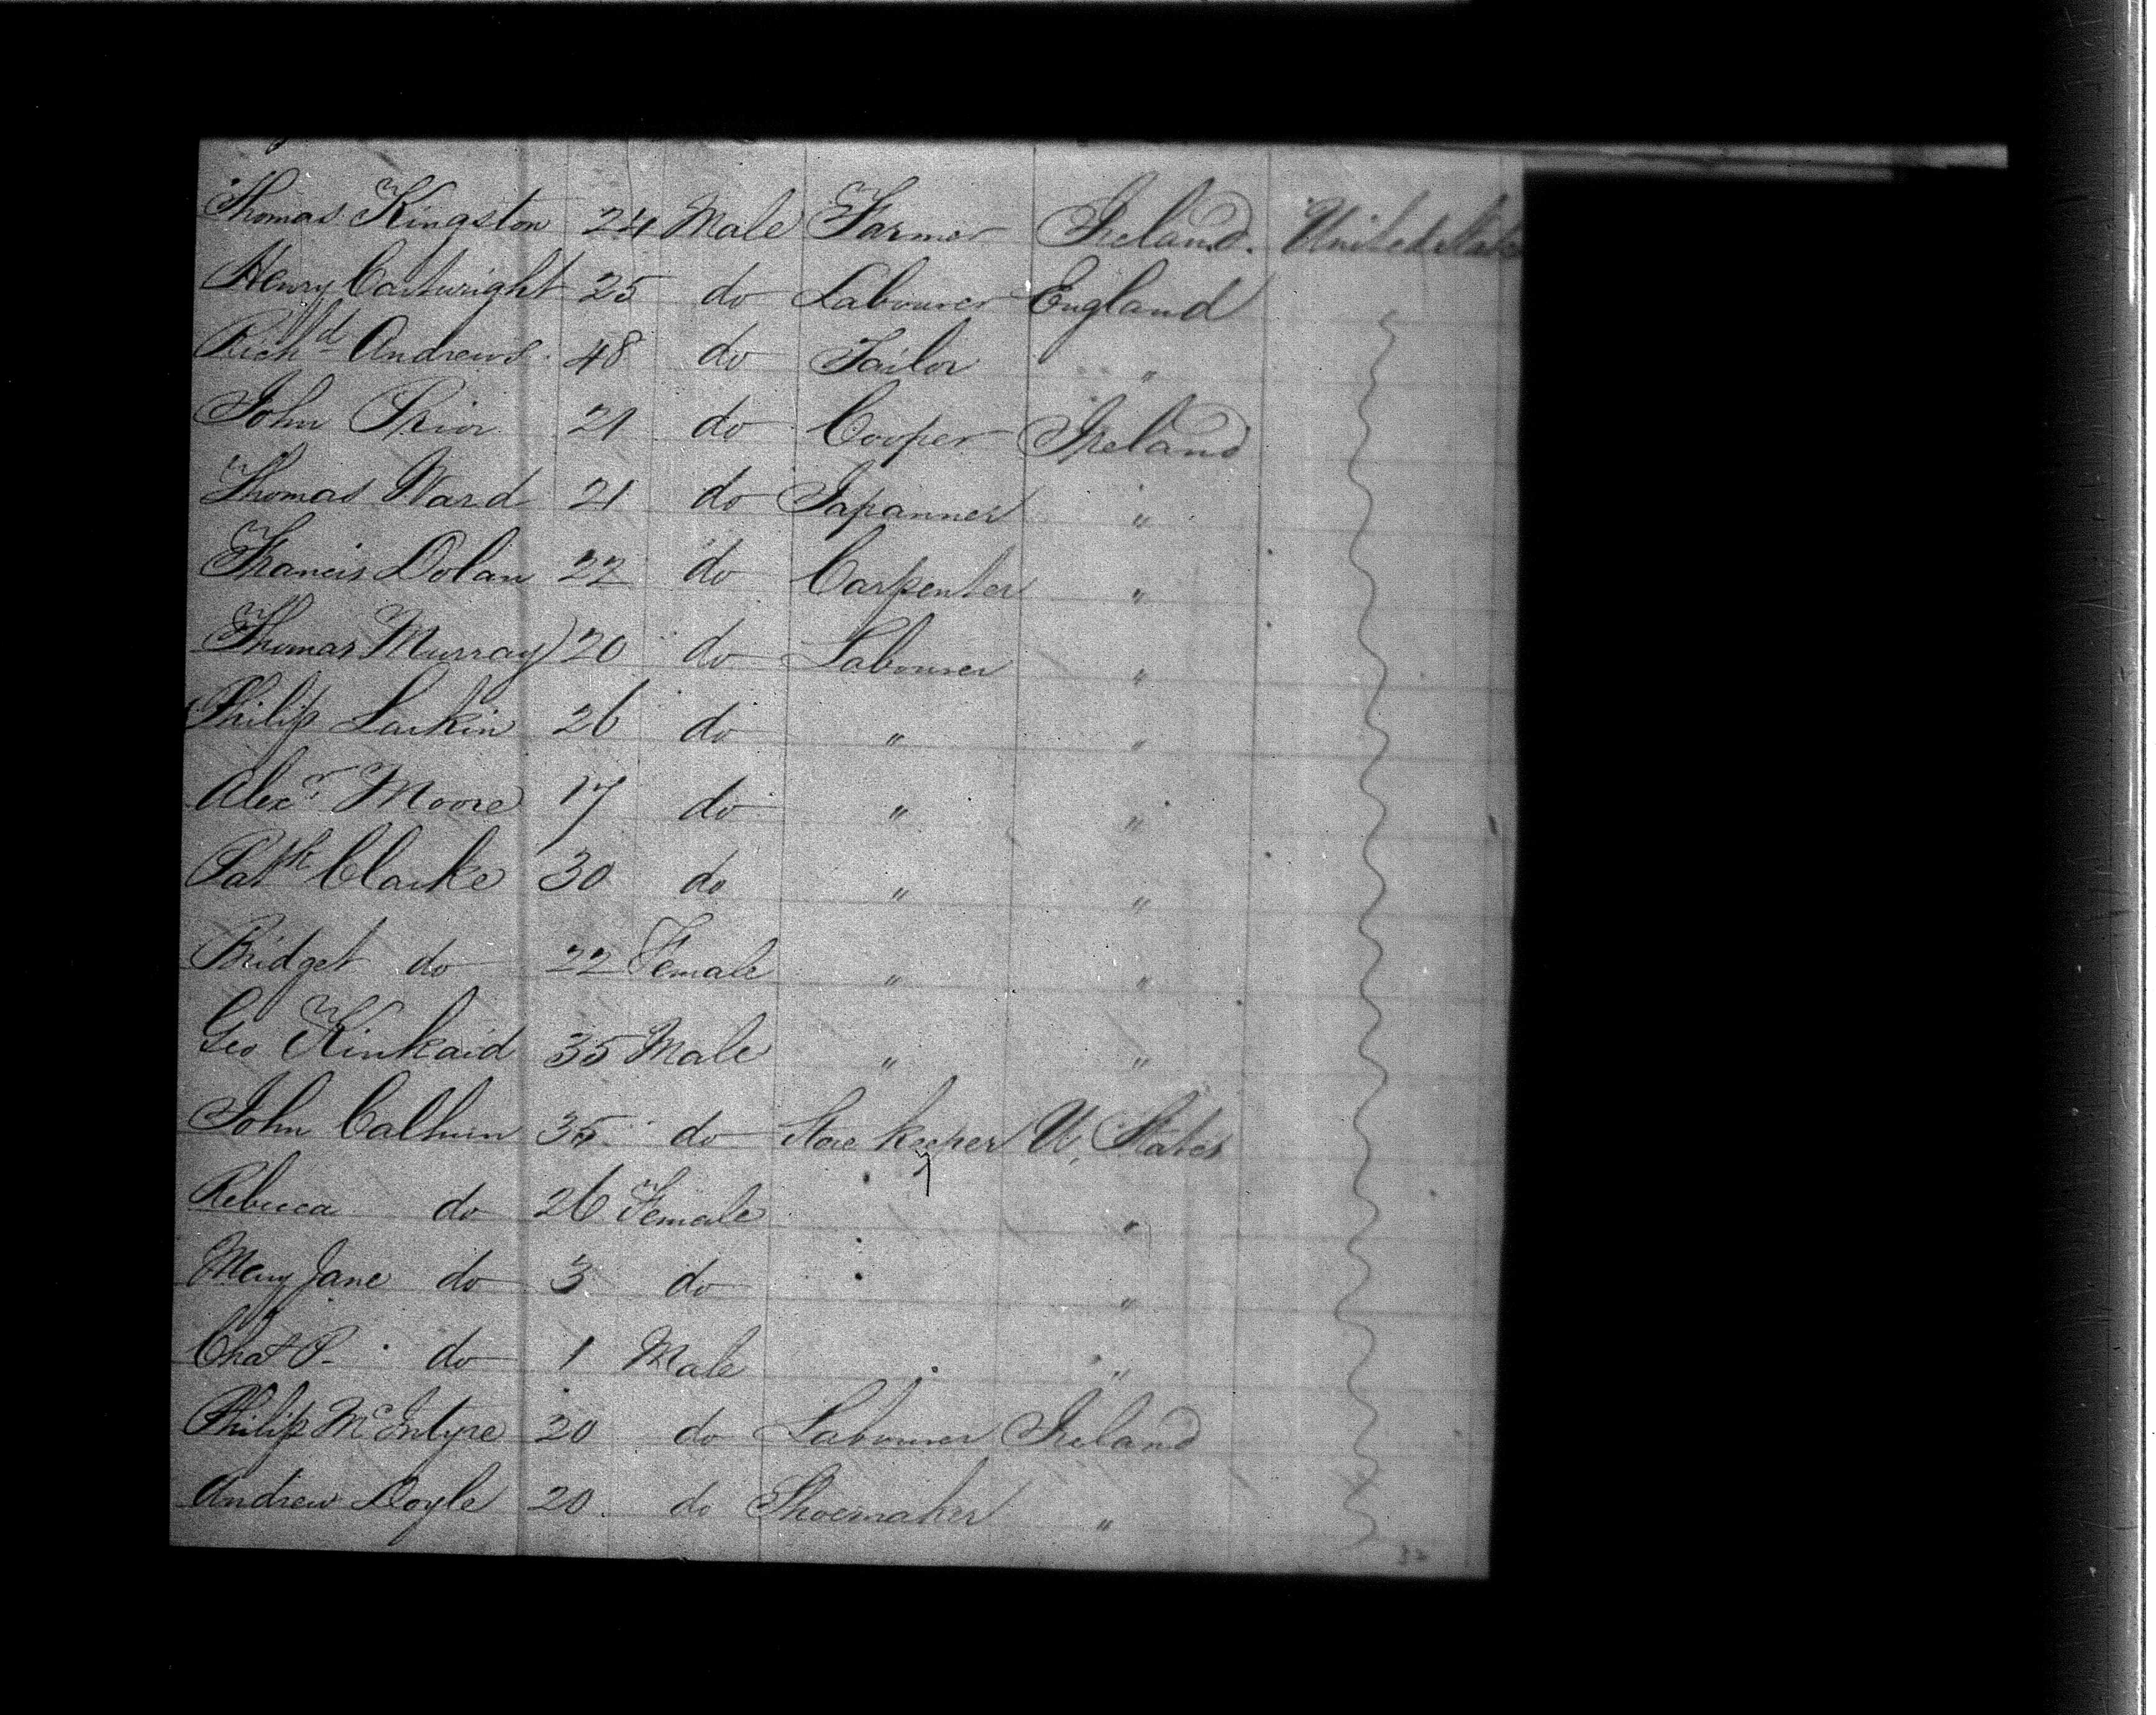 Thomas Kingston 24 Male Farmer Ireland. United States
Henry Cartwright 25 do Labourer England
Richd Andrews 48 do Tailor "
John Prior 21 do Cooper Ireland
Thomas Ward 21 do Japanner "
Francis Dolan 22 do Carpenter "
Thomas Murray 20 do Labourer "
Philip Larkin 26 do " "
Alexr Moore 17 do " "
Patk Clarke 30 do " "
Bridget do 22 Female " "
Geo Kinkaid 35 Male " "
John Calhun 35 do Store keeper U. States
Rebecca do 26 Female "
Mary Jane do 3 do "
Chas P. do 1 Male "
Philip McEntyre 20 do Labourer Ireland
Andrew Doyle 20 do Shoemaker "
32